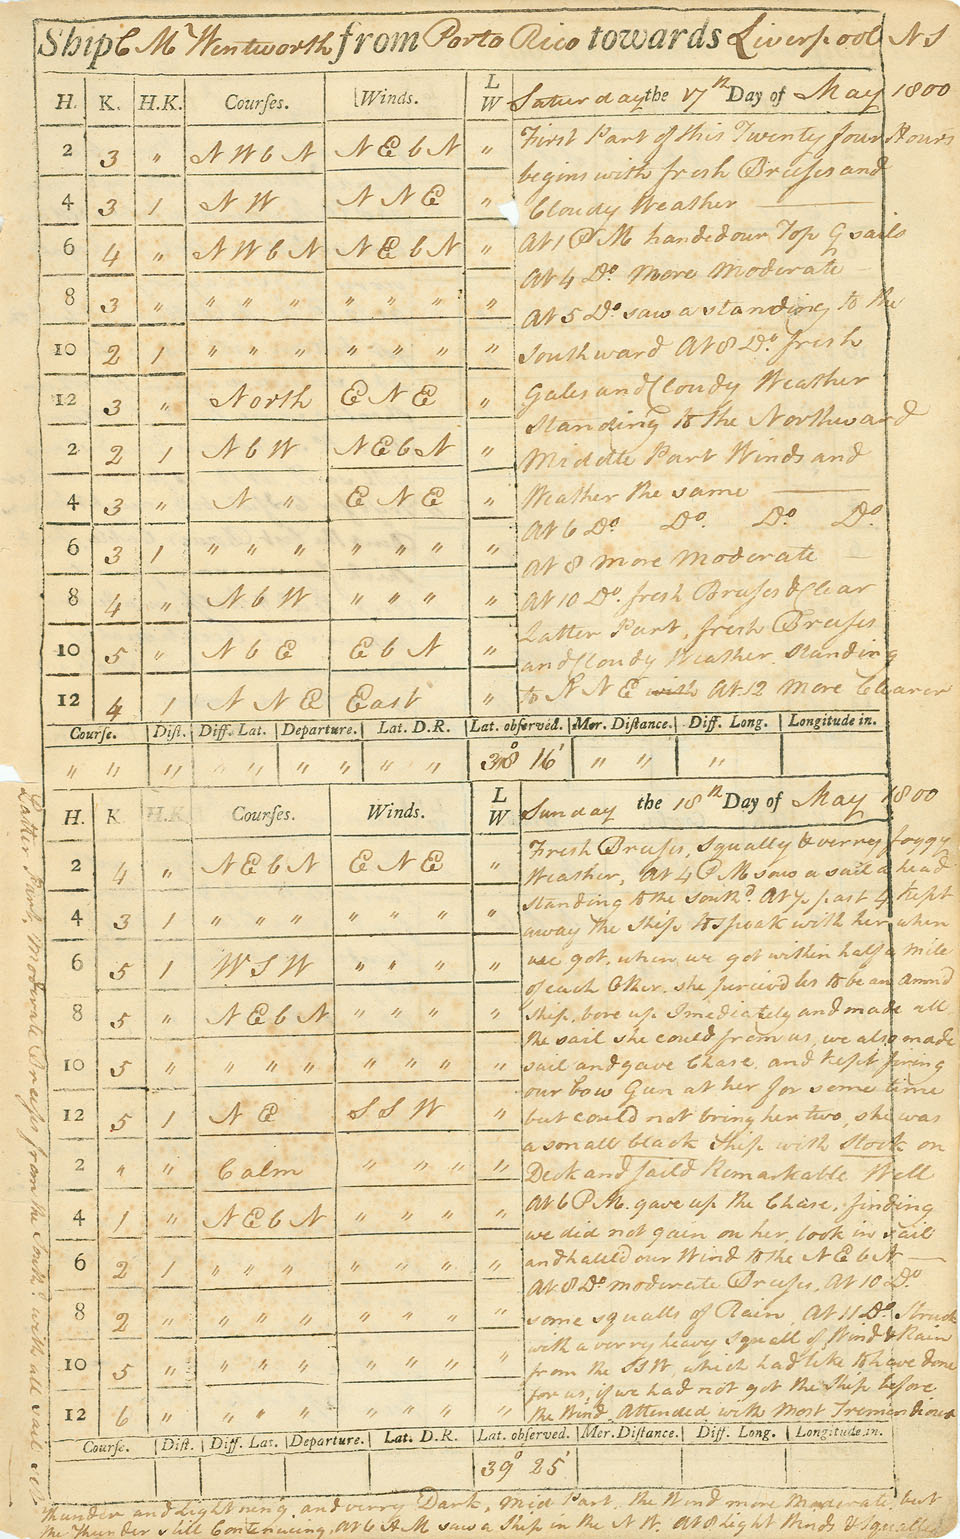 Ship C Mr Wentworth from Porto Rico towards Liverpool N S
H. K. H.K. Courses. Winds. L W Saturday the 17th Day of May 1800
2 3 " N W b N N E b N "
4 3 1 N W N N E "
6 4 " N W b N N E b N "
8 3 " " " " " " " "
10 2 1 " " " " " " "
12 3 " North E N E "
2 2 1 N b W N E b N "
4 3 " N " E N E "
6 3 1 " " " " " " "
8 4 " N b W " " " "
10 5 " N b E E b N "
12 4 1 N N E East "
First Part of this Twenty four Hours
begins with fresh Breeses and
Cloudy Weather
At 1 P M handed our Top G sails
At 4 Do. More Moderate
At 5 Do. saw a standing to the
Southward At 8 Do. fresh
Gales and Cloudy Weather
Standing to the Northward
Middle Part Winds and
Weather the same
At 6 Do. Do. Do. Do
At 8 more moderate
At 10 Do. fresh Breeses & Clear
Latter Part, fresh Breeses
and Cloudy Weather. Standing
to N N E with At 12 more Clearer
Course. Dist. Diff. Lat. Departure. Lat. D.R. Lat. observed. Mer. Distance. Diff. Long. Longitude in.
" " " " " " " " " 38° 16' " " "
H. K H.K. Courses. Winds. L W Sunday the 18th Day of May 1800
2 4 " N E b N E N E "
4 3 1 " " " " " " "
6 5 1 W S W " " " "
8 5 " N E b N " " " "
10 5 " " " " " " " "
12 5 1 N E S S W "
2 " " Calm " " " "
4 1 " N E b N " " " "
6 2 1 " " " " " " "
8 2 " " " " " " " "
10 5 " " " " " " " "
12 6 " " " " " " " "
Fresh Breeses, Squally & verry foggy
Weather, At 4 P M saw a sail a head
standing to the Southd. At ½ past 4 kept
away the Ship to speak with her when
we got, when we got within half a mile
of each Other, she percievd us to be an Armd
Ship, bore up Imediately and made all
the sail she could from us, we also made
sail and gave Chase, and kept firing
our bow Gun at her for some time
but could not bring her two, she was
a small black Ship with stock on
Deck and Saild Remarkable Well
At 6 P M. gave up the Chase, finding
we did not gain on her, took in sail
and halled our Wind to the N E b N
At 8 Do moderate Breeses, At 10 Do
some squalls of Rain, At 11 Do Struck
with a verry heavy Squall of Wind & Rain
from the SSW, which had like to have done
for us, if we had not got the Ship before
the Wind. Attended with most Tremendious
Course. Dist. Diff. Lat. Departure. Lat. D.R. Lat. observed. Mer. Distance. Diff. Long. Longitude in.
39° 25'
thunder and lightning and verry Dark, Mid Part, the Wind more Moderate, but
the Thunder still Continuing, At 6 A M saw a Ship in the N W. At 8 light Winds & Squalley
Latter Part, Moderate Breeses from the Southd. with all sail set